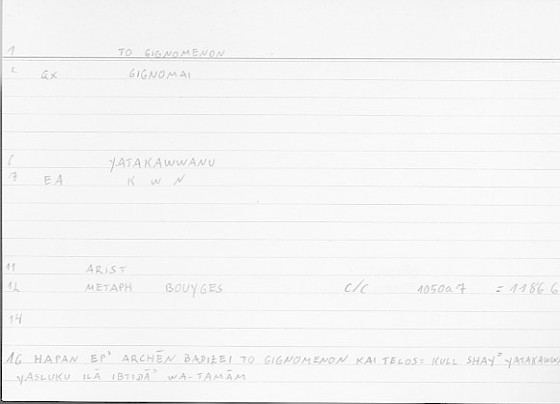 1 TO GIGNOMENON
2 GX GIGNOMAI
6 YATAKAWWANU
7 EA K W N
11 ARIST
12 METAPH BOUYGES C/C 1050a7 = 1186 6
14
16 HAPAN EP' ARCHĒN BADIZEI TO GIGNOMENON KAI TELOS = KULL SHAY' YATAKAWWA
YASLUKU ILĀ IBTIDĀ' WA-TAMĀM